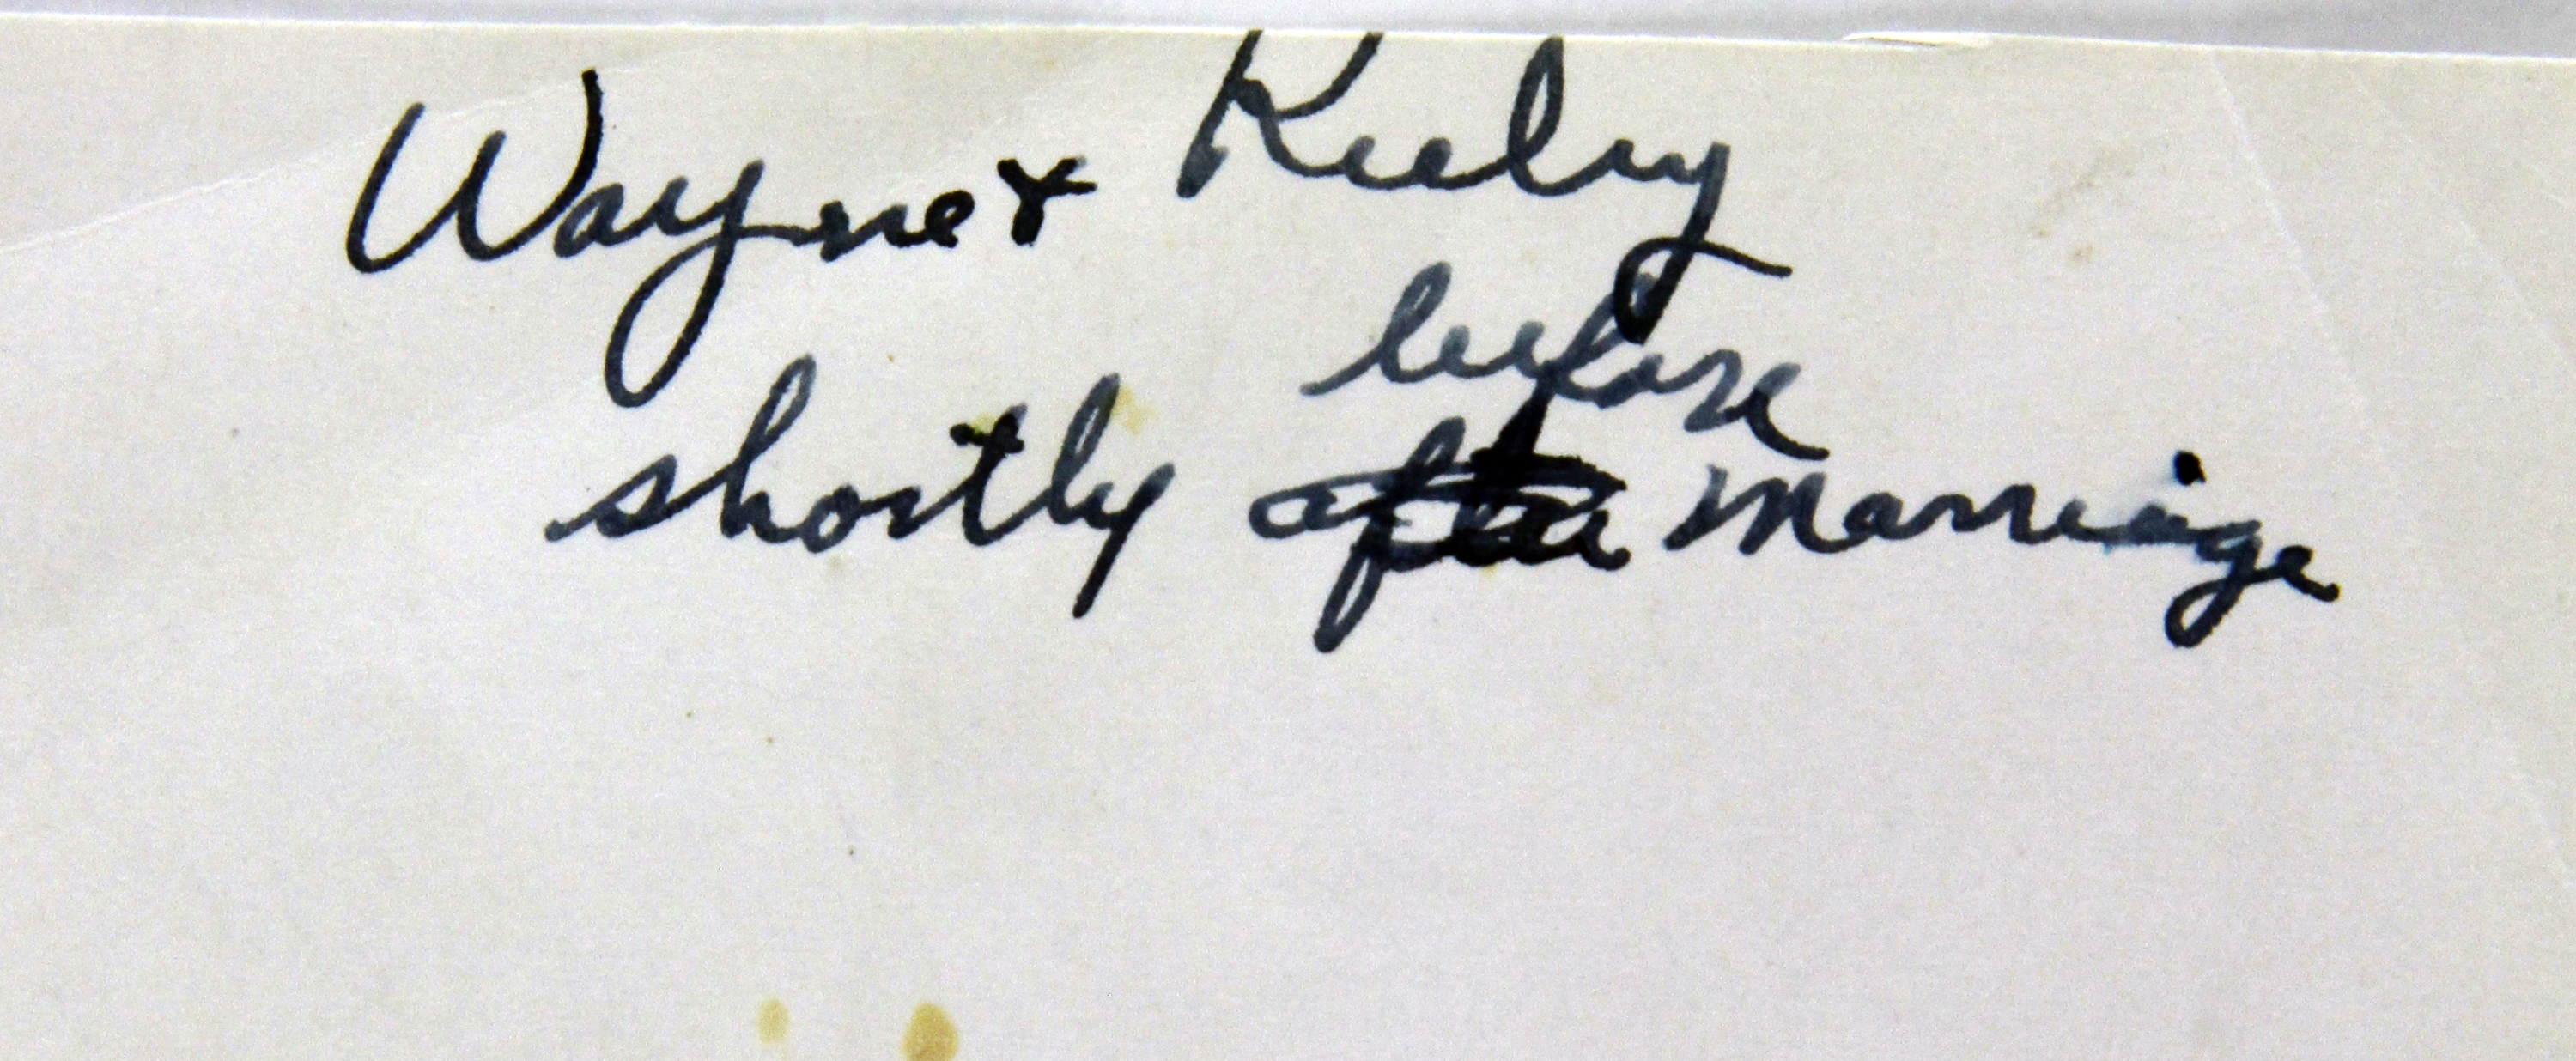 Wayne & Ruby
before
shortly after marriage